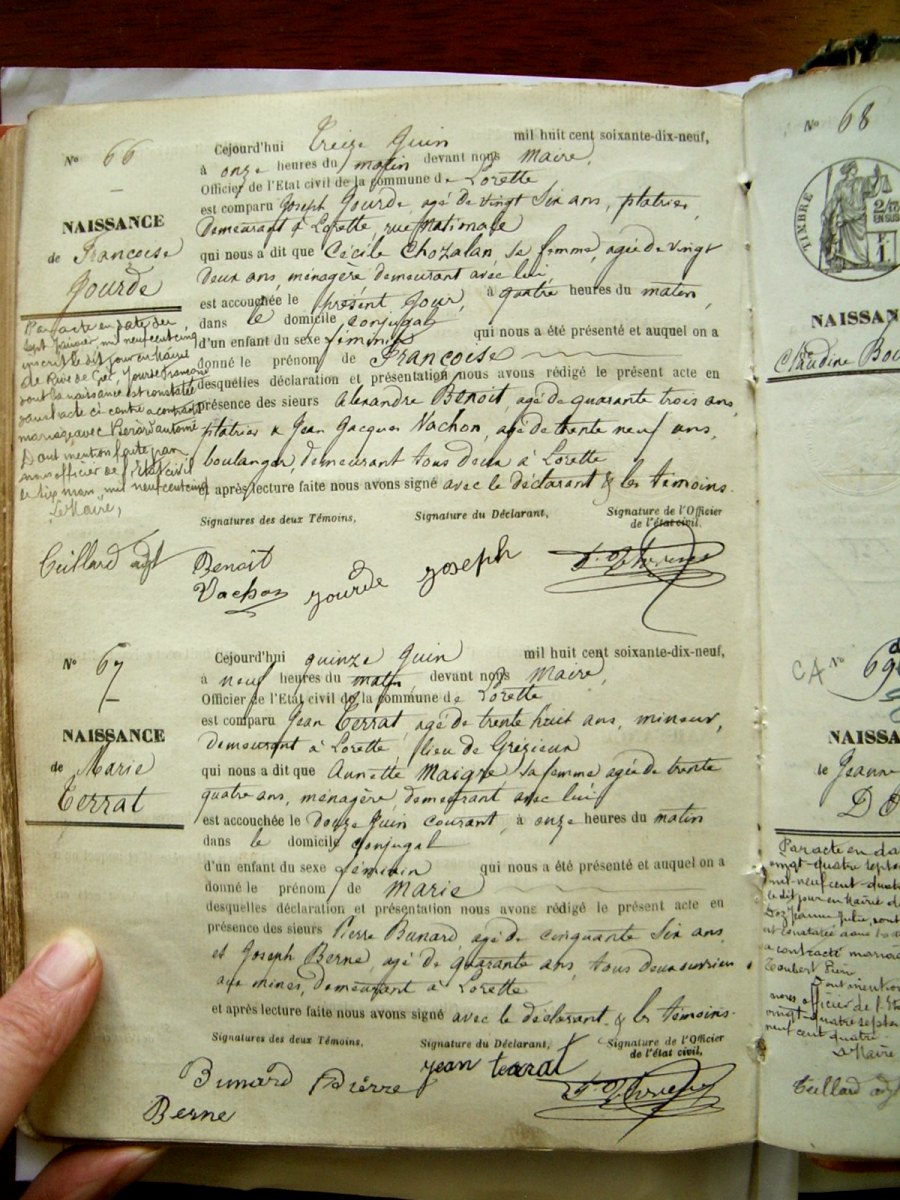 Nº 66
NAISSANCE
de Françoise
Jourde
Par acte en date du
sept Janvier, mil neuf cent cinq
inscrit le dit jour en Mairie
de Rive de Gier, Jourde Françoise
dont la naissance est constatée
dans l'acte ci contre a contracté
mariage avec Pierard antoine
Dont mention faite par
nous officier de l'Etat civil
le dix mars, mil neuf cent cinq
Le Maire,
Teillard adjt
Cejourd'hui treize Juin mil huit cent soixante-dix-neuf,
à onze heures du matin devant nous Maire,
Officier de l'Etat civil de la commune de Lorette
est comparu Joseph Jourde agé de vingt six ans, platrier,
demeurant à Lorette, rue Nationale
qui nous a dit que Cécile Chozalan, sa femme, agée de vingt
deux ans, ménagère, demeurant avec lui
est accouchée le présent Jour, à quatre heures du matin,
dans le domicile conjugal
d'un enfant du sexe féminin qui nous a été présenté et auquel on a
donné le prénom de Françoise
desquelles déclaration et présentation nous avons rédigé le présent acte en
présence des sieurs Alexandre Benoit, agé de quarante trois ans,
platrier & Jean Jacques Vachon, agé de trente neuf ans,
boulanger, demeurant tous deux à Lorette
et après lecture faite nous avons signé avec le déclarant & les témoins.
Signatures des deux Témoins, Signature du Déclarant, Signature de l'Officier
de l'état civil,
Benoît
Vachon jourde joseph
Nº 67
NAISSANCE
de Marie
Terrat
Cejourd'hui quinze Juin mil huit cent soixante-dix-neuf,
à neuf heures du matin devant nous Maire,
Officier de l'Etat civil de la commune de Lorette
est comparu Jean Terrat, agé de trente huit ans, mineur,
demeurant à Lorette, lieu de Grézieux
qui nous a dit que Annette Maigre sa femme agée de trente
quatre ans, ménagère, demeurant avec lui
est accouchée le douze Juin courant, à onze heures du matin
dans le domicile conjugal
d'un enfant du sexe féminin qui nous a été présenté et auquel on a
donné le prénom de Marie
desquelles déclaration et présentation nous avons rédigé le présent acte en
présence des sieurs Pierre Bunard, agé de cinquante six ans
et Joseph Berne, agé de quarante ans, tous deux ouvriers
aux mines, demeurant à Lorette
et après lecture faite nous avons signé avec le déclarant & les témoins.
Signatures des deux Témoins, Signature du Déclarant, Signature de l'Officier
de l'état civil,
Bunard Pierre jean terrat
Berne
Nº 68
TIMBRE
2/10
EN SUS
NAISSAN
Claudine Bou
CA Nº 69
NAISSA
de Jeanne
DO
Par acte en da
vingt-quatre septe
mil-neuf cent-quatre
le dit jour en Mairie de
Doz Jeanne Julie, dont
est constatée dans l'a
a contracté mariage
Toubert Pierre
Dont mention
nous officier de l'Eta
vingt-quatre septem
neuf cent quatre
Le Maire
Teillard adjt